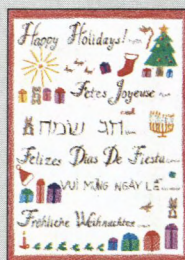 Happy Holidays!
Fêtes Joyeuse
חג שמח
Felizes Dias De Fiesta
VUI MỪNG NGÀY LỄ
Fröhliche Weihnachten